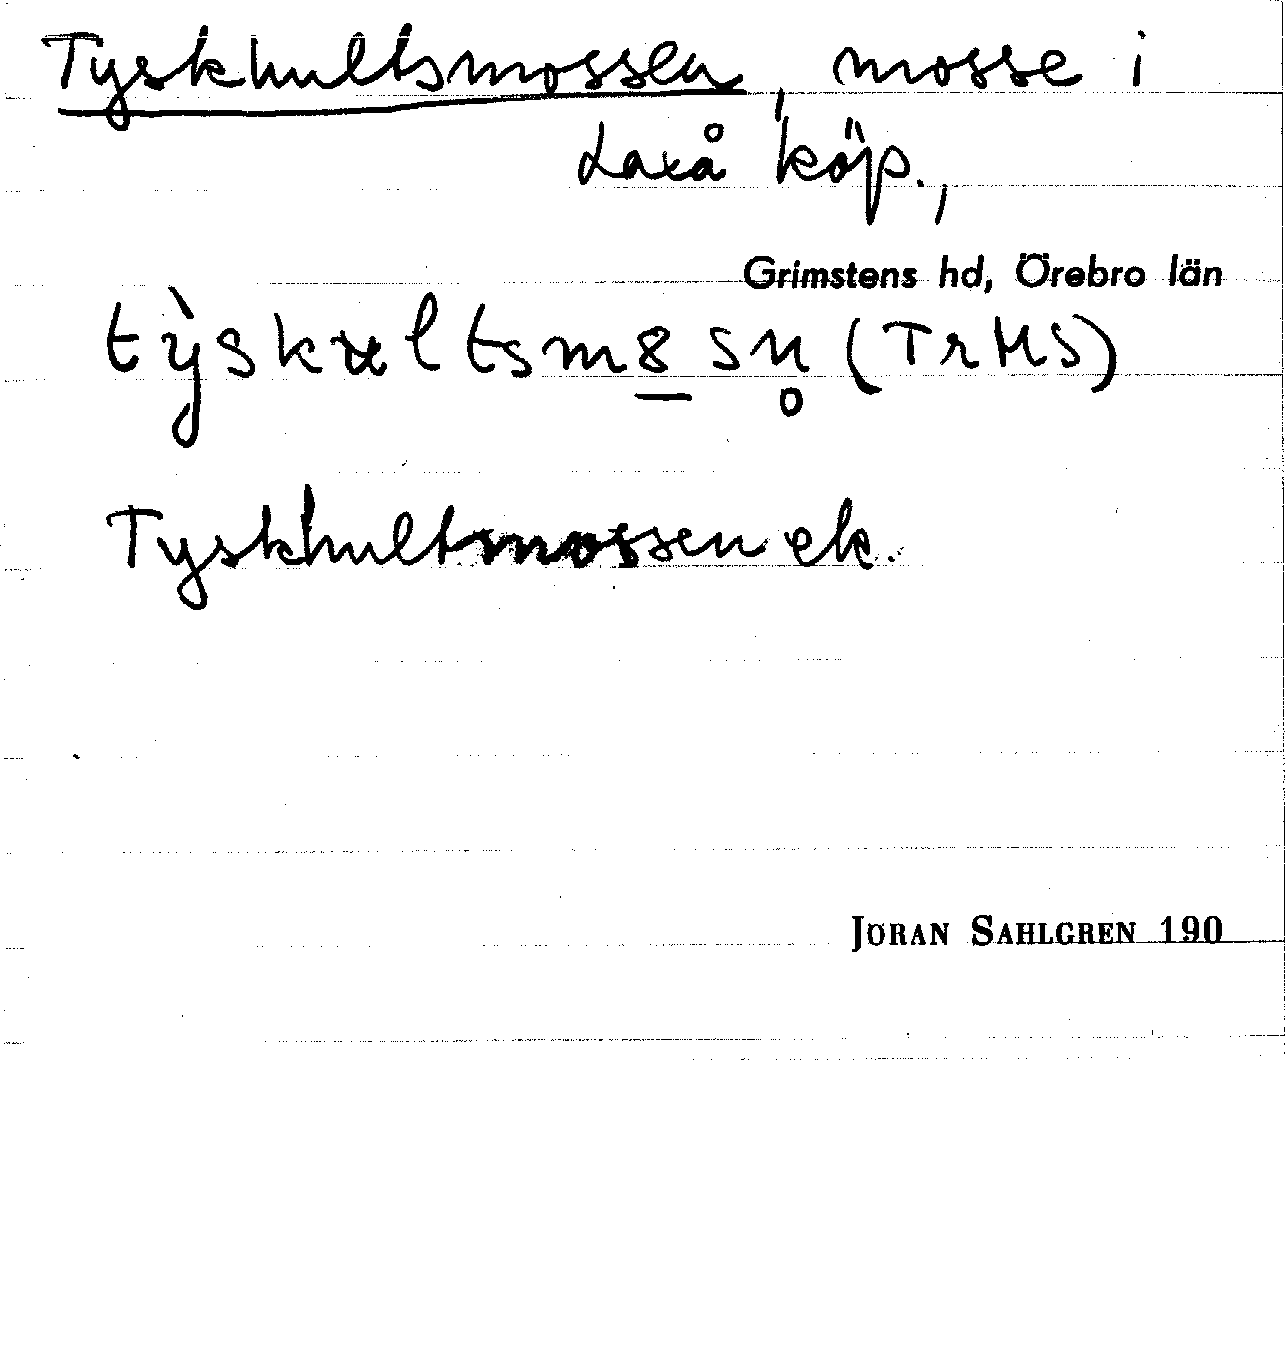 Tyskhultsmossen, mosse i
Laxå köp.,
Grimstens hd, Örebro län
(TrHS)
Tyskhultmossen ek.
JÖRAN SAHLGREN 190